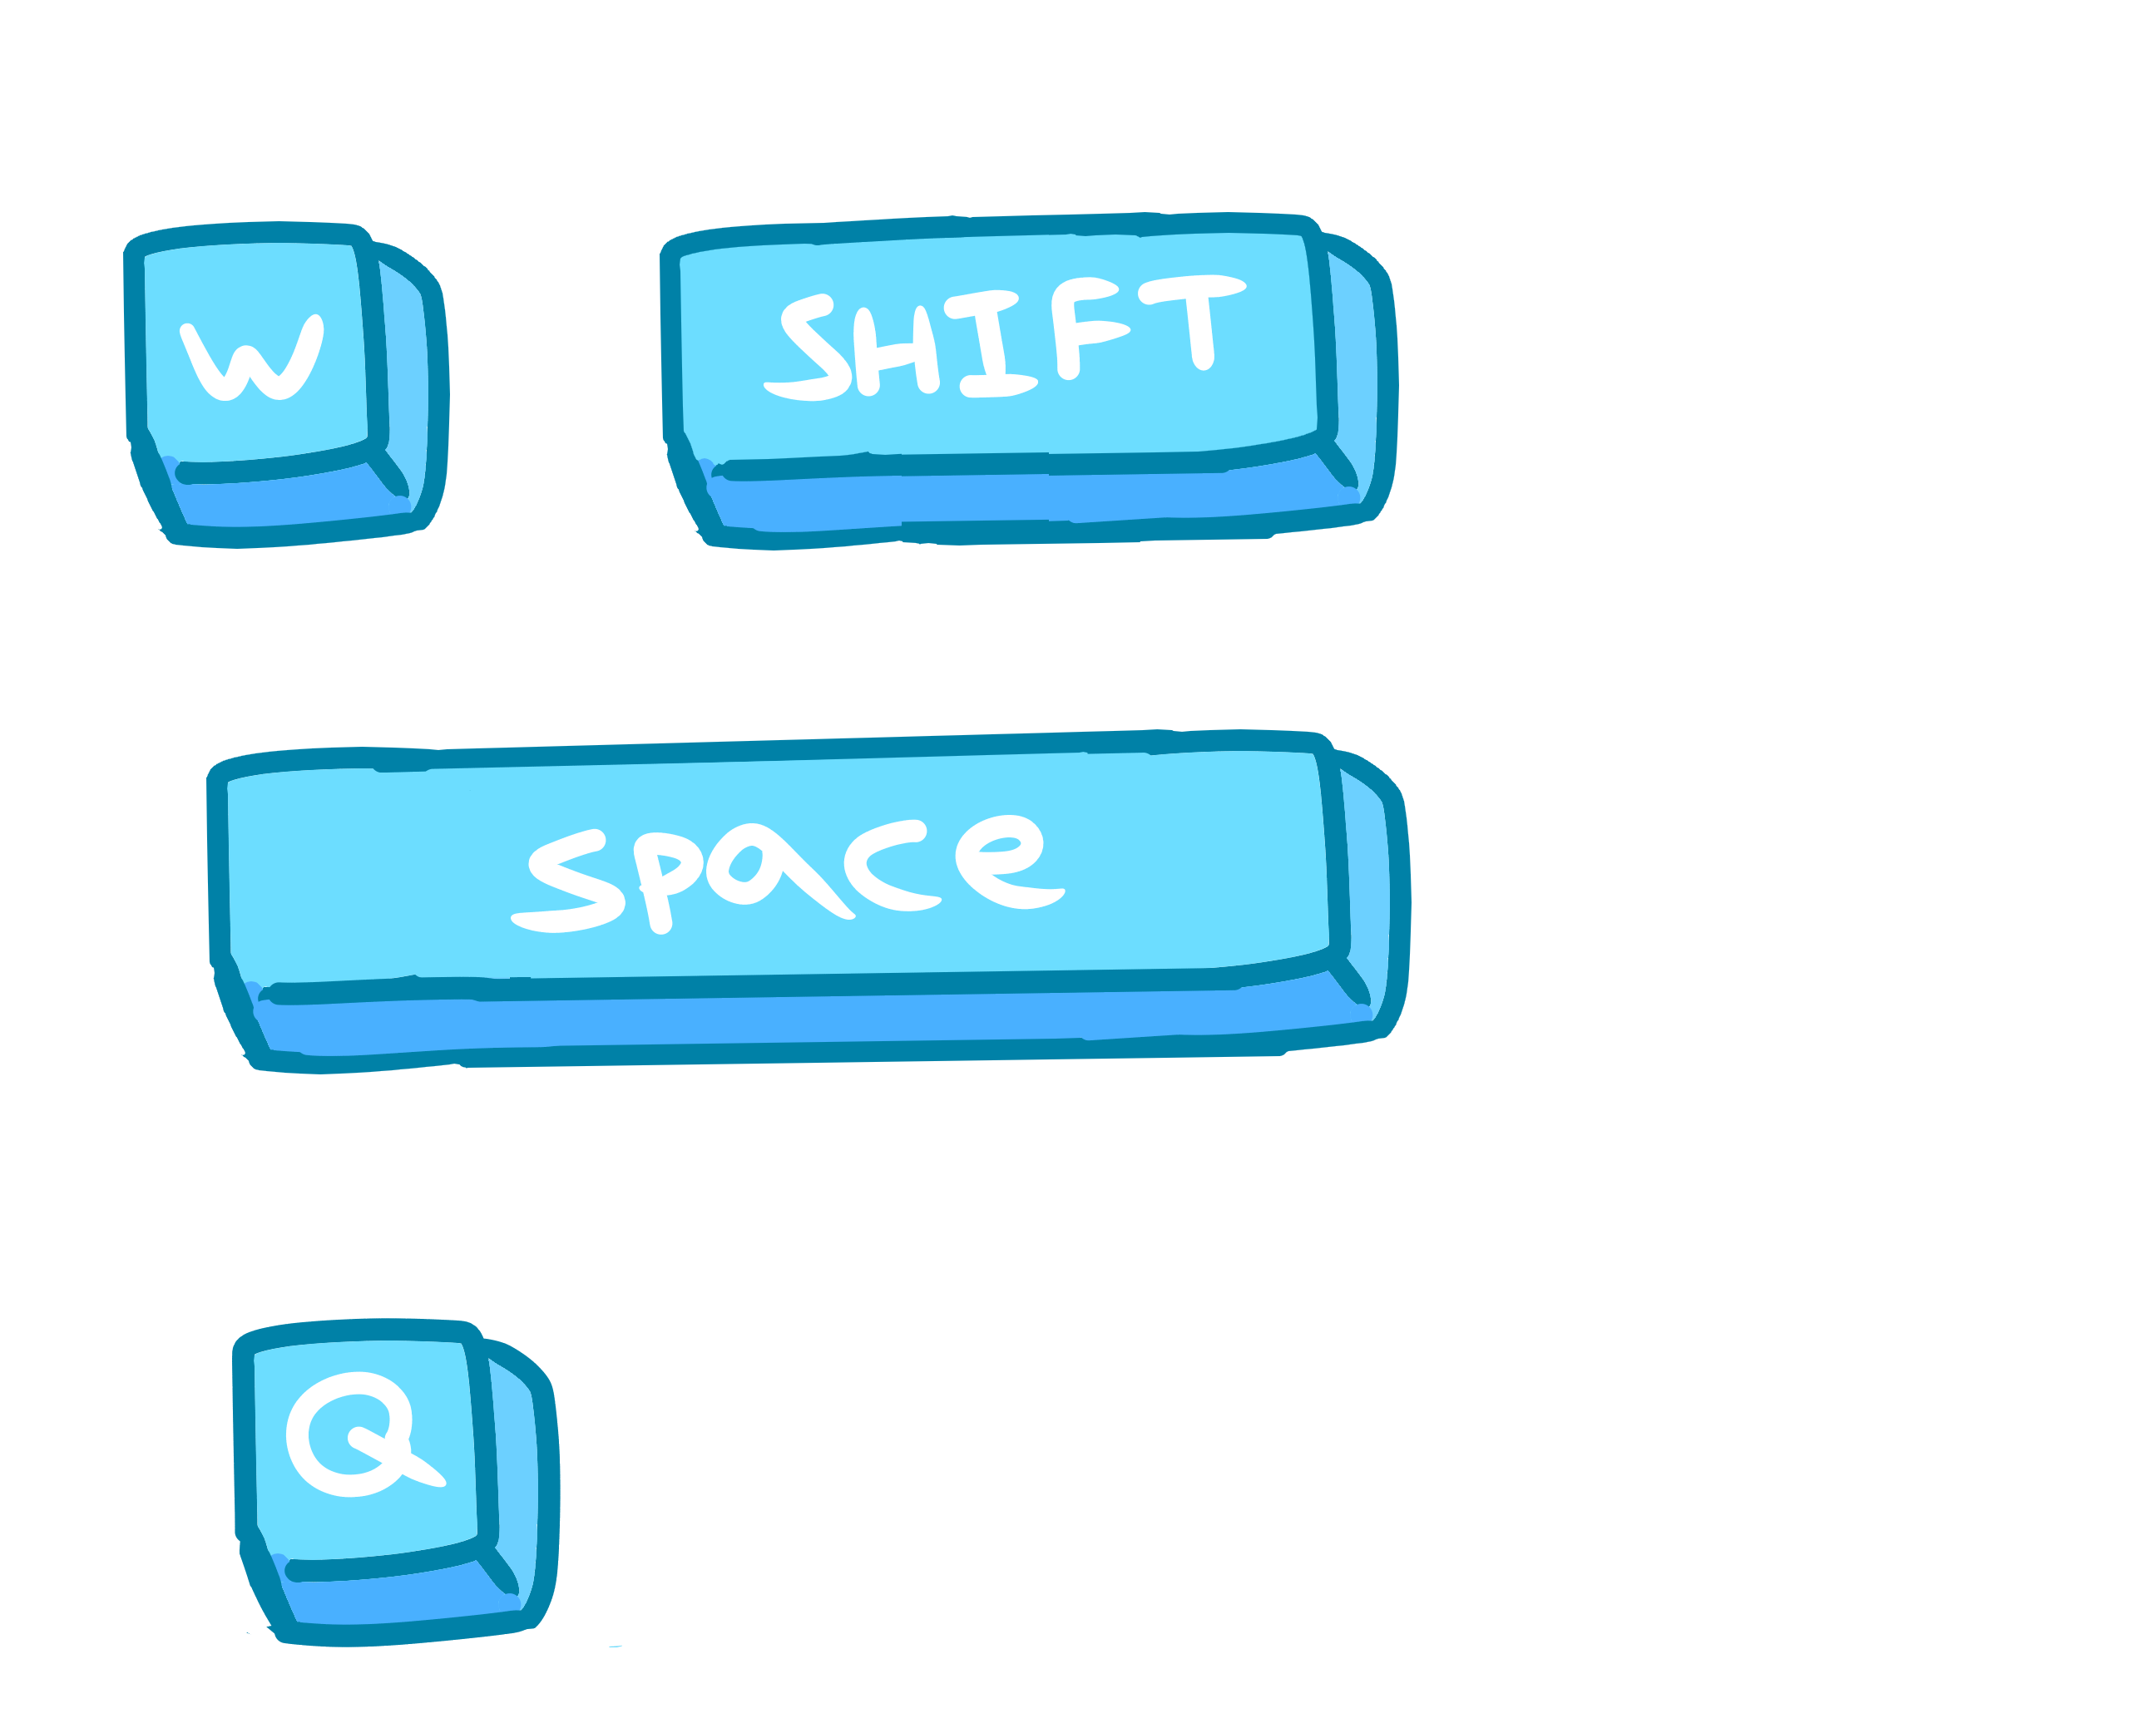 W
SHIFT
space
Q